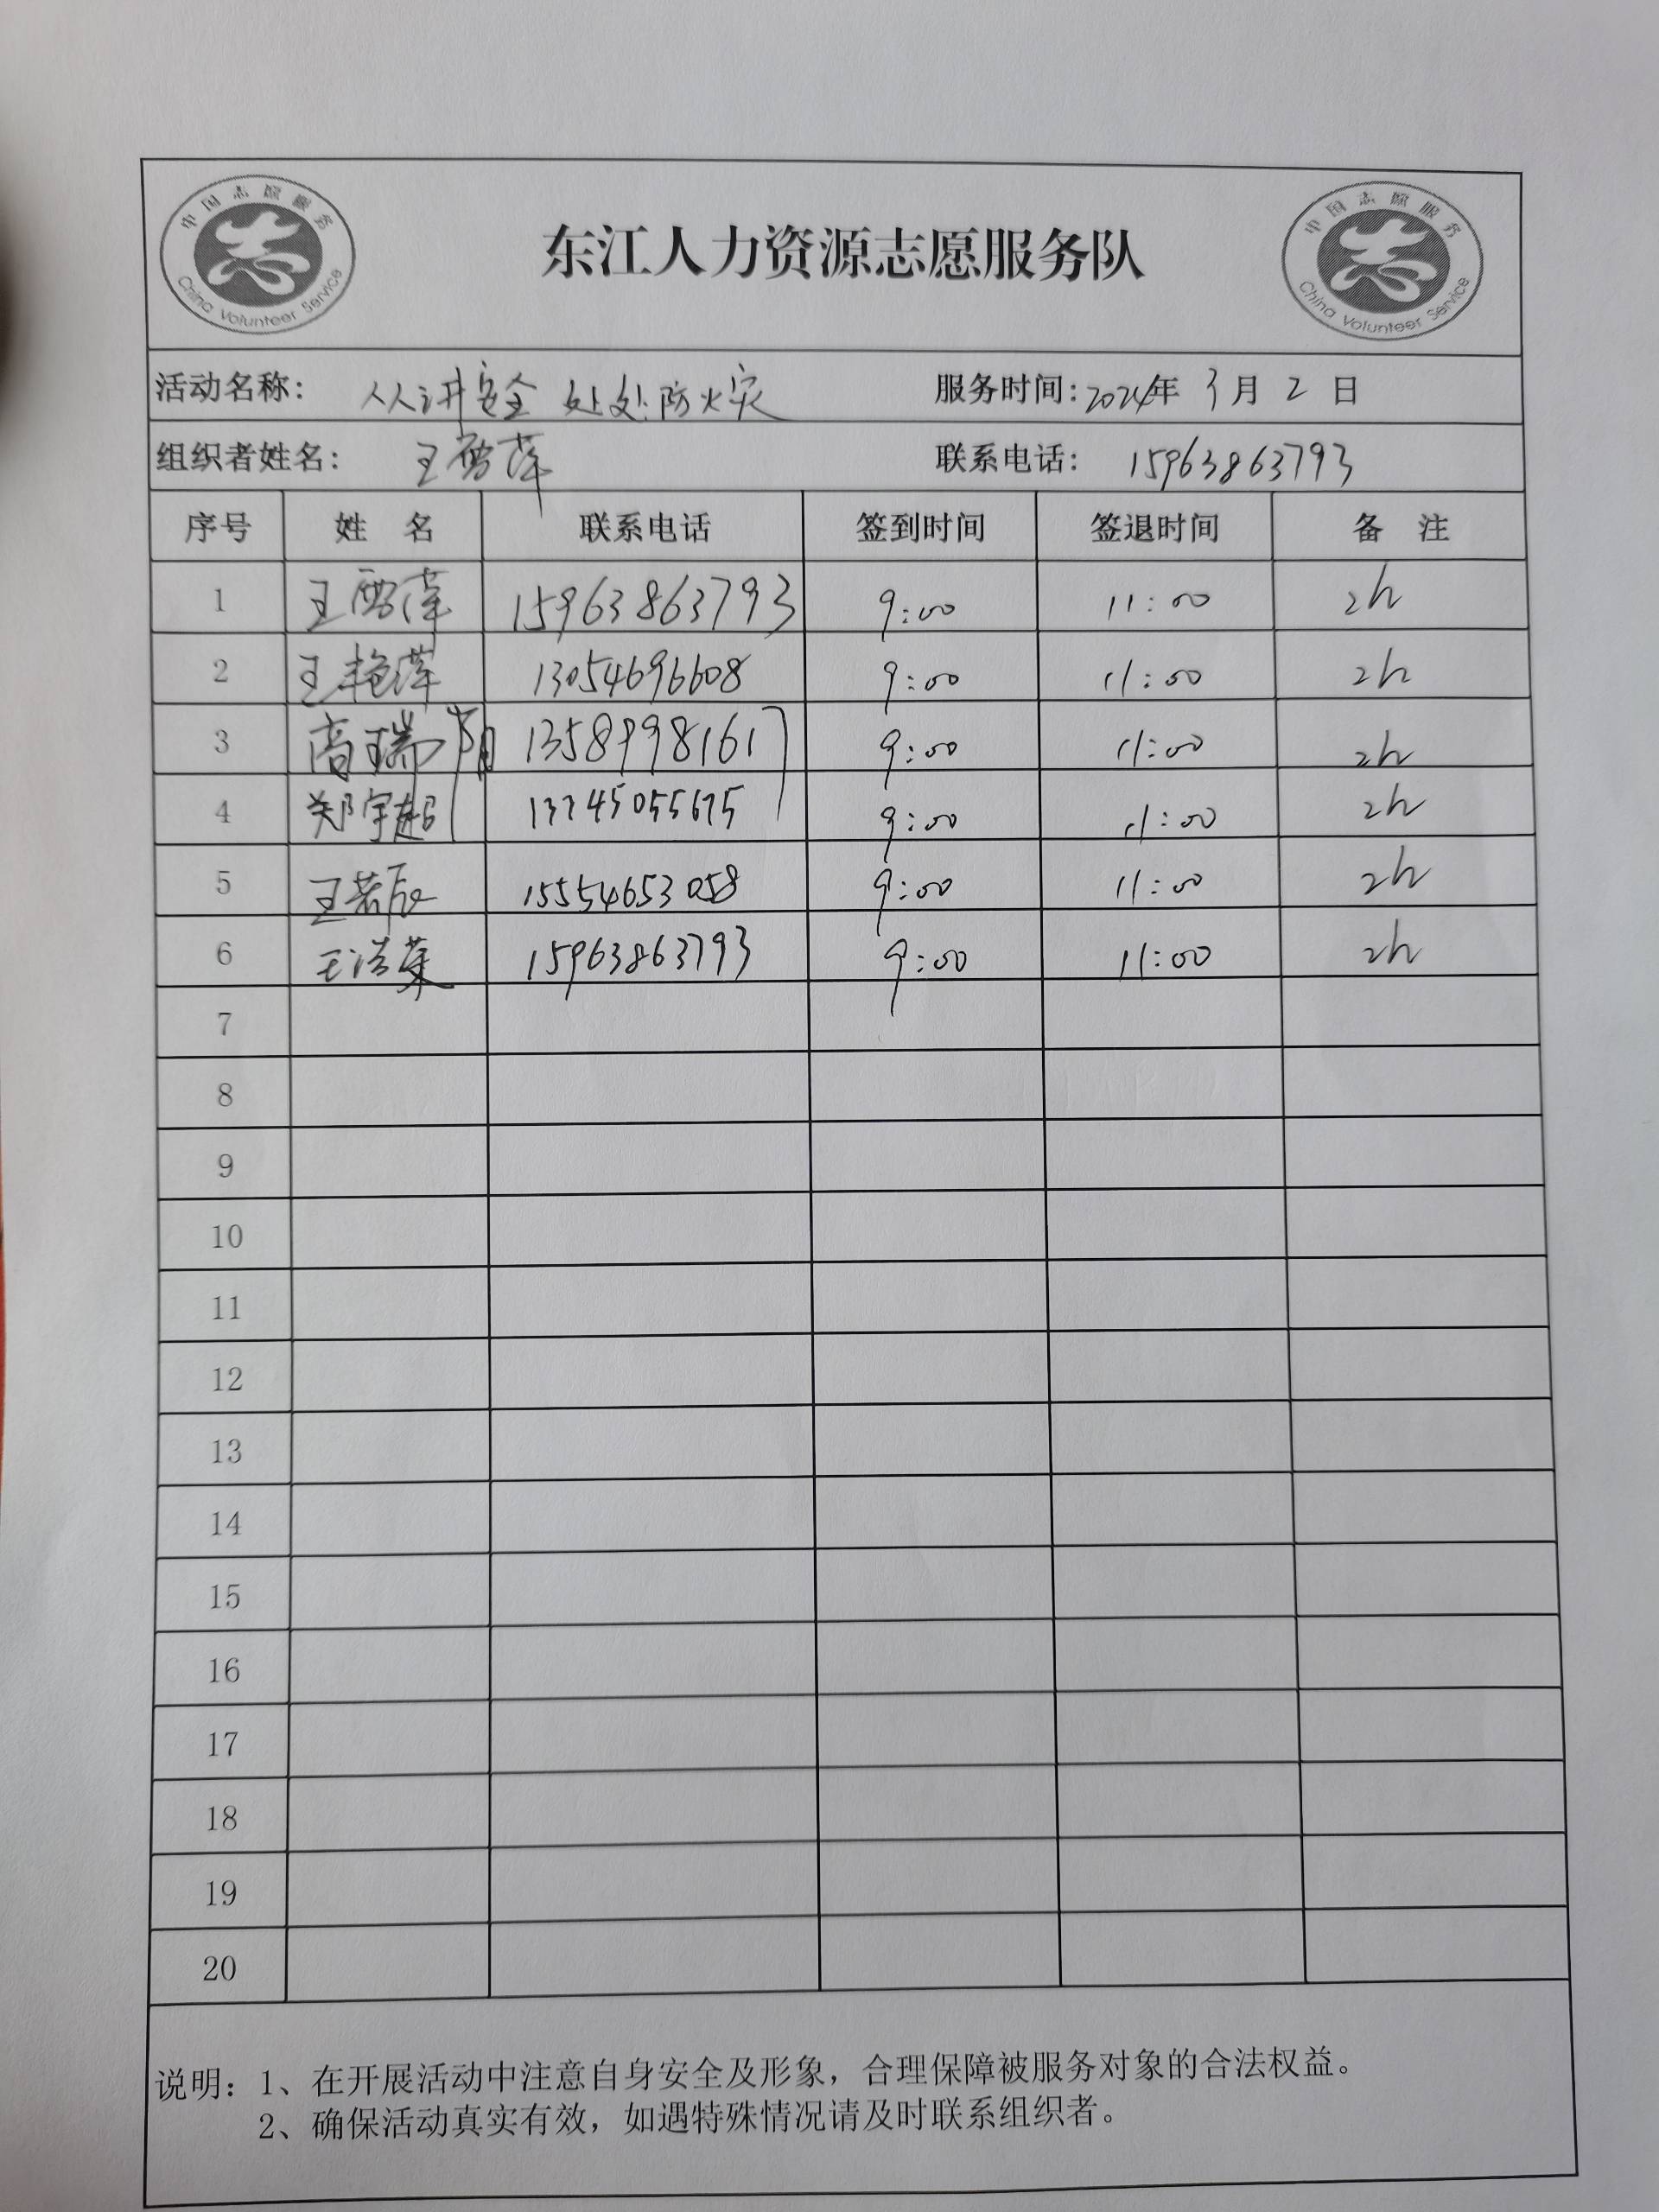 中国志愿服务
China Volunteer Service
东江人力资源志愿服务队
中国志愿服务
China Volunteer Service
活动名称： 人人讲安全 处处防火灾 服务时间：2024年 3月 2 日
组织者姓名： 王雪萍 联系电话： 15963863793
序号 姓 名 联系电话 签到时间 签退时间 备 注
1 王雪萍 15963863793 9:00 11:00 2h
2 王艳萍 13054696608 9:00 11:00 2h
3 高瑞阳 13589981617 9:00 11:00 2h
4 郑宇超 9:00 11:00 2h
5 王若辰 15554653058 9:00 11:00 2h
6 王浩 15963863793 9:00 11:00 2h
7
8
9
10
11
12
13
14
15
16
17
18
19
20
说明：1、在开展活动中注意自身安全及形象，合理保障被服务对象的合法权益。
2、确保活动真实有效，如遇特殊情况请及时联系组织者。